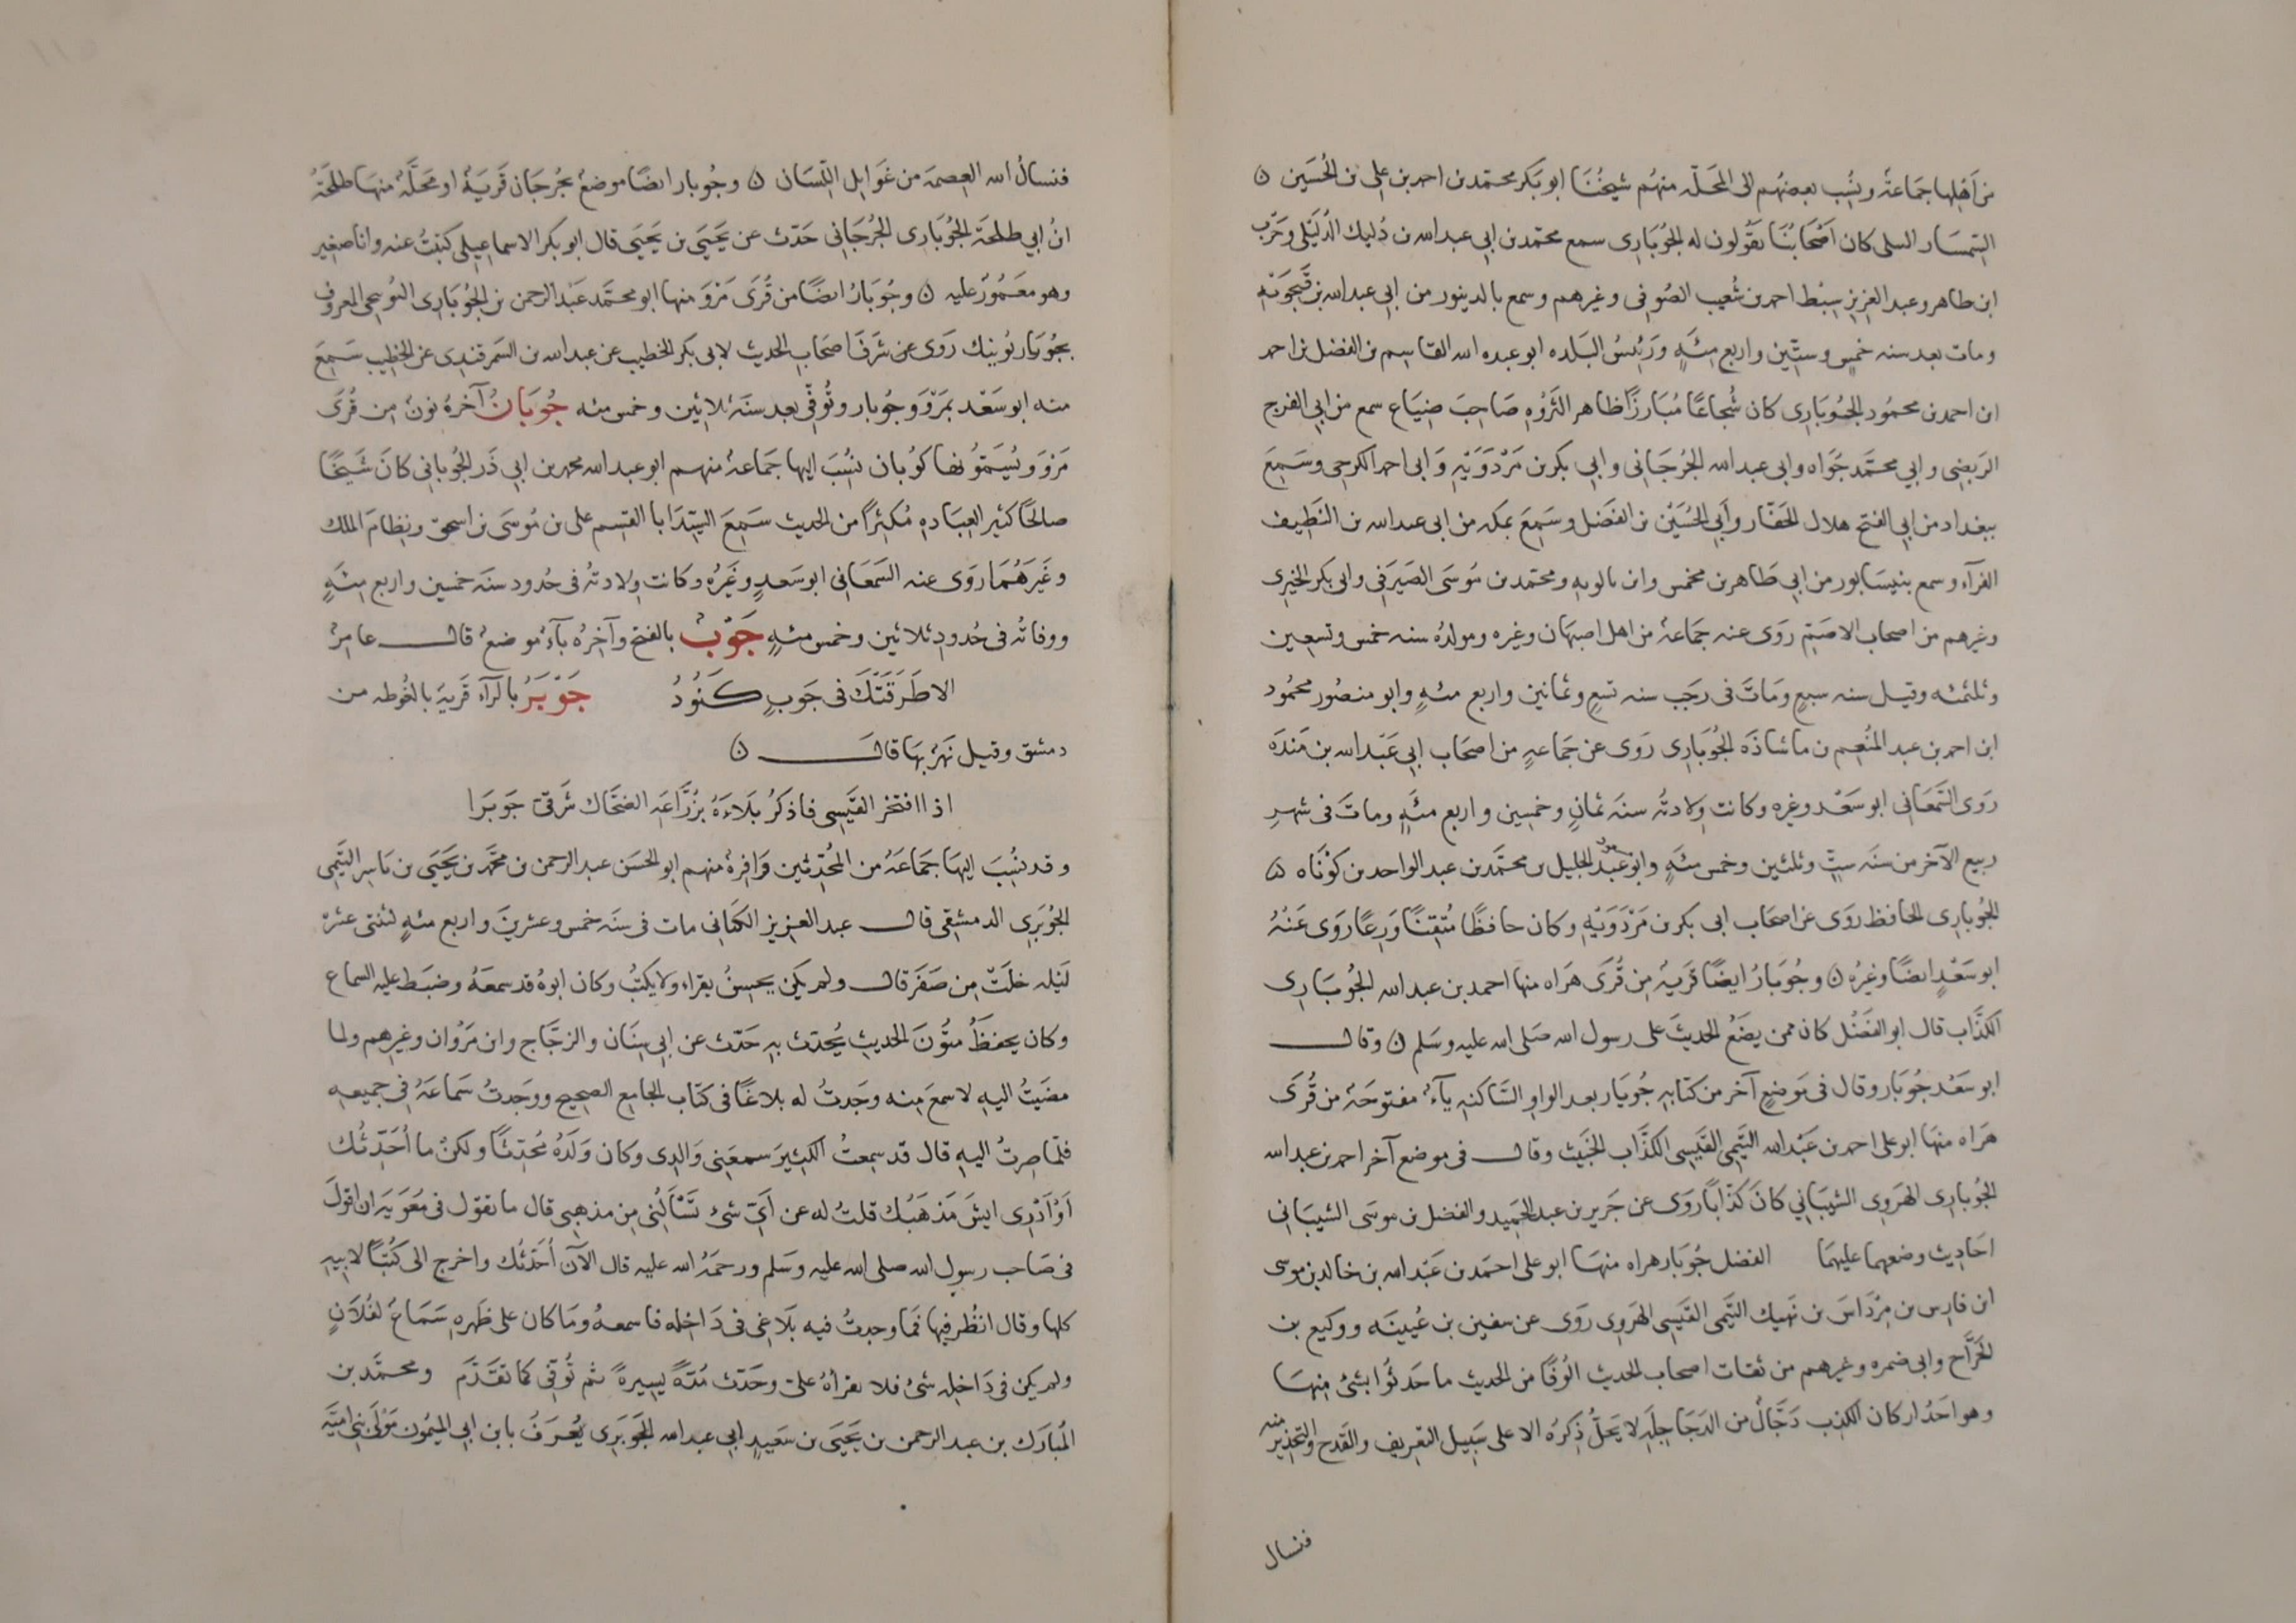 من اهلها جماعة ونسب بعضهم الى المحلّة منهم شيخنا ابو بكر محمّد بن احمد بن على بن الحُسَين ۞
السّمسار السلى كان اصحابُنا يقُولون له الجُوبَارى سمع محمّد بن ابى عبد الله بن دُليك الدُّلَيْلى وحَرْب
ابن طاهر وعبد العزيز سِبْط احمد بن شُعيب الصُوفى وغيرهم وسمع بالدينور من ابى عبد الله بن فَنجُوَيْهِ
ومات بعد سنه خمسٍ وستّين واربع مئةٍ ورَئيسُ البَلده ابو عبده الله القاسِم بن الفضل بن احمد
ابن احمد بن محمُود الجُوبَارى كان شُجاعًا مُبَارزًا ظاهر الثَروُهِ صَاحِبَ ضِيَاع سمع من ابى الفرج
الربضى وابي محمَّد جَوَاه وابى عبد الله الجُرجَانى وابى بكر بن مَرْدَوَيْهِ وَابى احمد الكرجى وسَمِعَ
ببغداد من ابى الفتح هلال الحَفّار وأبى الحُسَيْن بن الفَضل وسَمِعَ بمكه من ابى عبد الله بن النَظِيف
الفرآء وسمع بنيسَابور من ابى طَاهر بن محمش وابن بالويه ومحمّد بن مُوسَى الصَيرَفى وابى بكر الحِيرى
وغيرهم من اصحاب الاصَمّ روَى عنه جَمَاعةٌ من اهل اصبهان وغيره ومولدُه سنه خمس وتسعين
وثلثمئه وقيل سنه سبعٍ ومَاتَ فى رجَب سنه تسعٍ وثمانين واربع مئهٍ وابو منصُور محمُود
ابن احمد بن عبد المنُعِم بن ماشاذَه الجُوبَارى رَوى عن جَماعهٍ من اصحَاب ابى عَبْد الله بن مَندَه
رَوى السَّمعَانى ابو سَعْد وغيره وكانت وِلادتُه سنَه ثمانٍ وخمسِين واربع مئهٍ وماتَ فى شهرِ
ربيع الآخر من سنَه ستٍّ وثلثين وخمس مئهٍ وابو مسعود عبد الجليل بن محمَّد بن عبد الواحد بن كوُتَاه ۞
الجُوبارِى الحافظ روَى عن اصحَاب ابى بكر بن مَرْدَوَيْهِ وكان حافظًا مُتقِنًا وَرِعًا روَى عَنْهُ
ابو سَعْدٍ ايضًا وغيرُه ۞ وجُوبَارُ ايضًا قَريةٌ مِن قُرَى هَراه منها احمد بن عبد الله الجُوبَارِى
الكذَّاب قال ابو الفَضْل كان ممن يضَعُ الحديثَ على رسول الله صَلى الله عليه وسَلم ۞ وقال
ابو سَعْد جوُبَار وقال فى مَوضعٍ آخر من كتابهِ جُويَار بعد الواوِ السَّاكنهِ يآءٌ مفتوحَةٌ من قُرَى
هَراه منهَا ابو على احمد بن عَبْد الله التَيمى القَيسِى الكذّاب الخَبَيث وقال فى موضع آخر احمد بن عبد الله
الجوُبارِى الهَروِى الشيبَاني كانَ كذّاباً روَى عن جَرير بن عبد الحَميد والفضل بن موسَى الشيبَانى
احَاديث وضعهما عليهمَا الفضل جُوبَار هراه منهَا ابو على احمَد بن عَبْد الله بن خالد بن موسى
ابن فارِس بن مِرْدَاسَ بن نَهيك التيَمى القَيسِى الهَروِى روَى عن سفين بن عُيينَه ووكيع بن
الجَرَّاح وابى ضمره وغيرهم من ثقات اصحاب الحديث الُوفًا من الحديث ما حَدثُوا بشئ مِنهَا
وهو احَدُ اركان الكذِب دَجَّالٌ من الدَجَاجِلَهِ لا يَحلُّ ذِكرُه الا على سَبيِل التعِريف والقَدح والتحذِير منه
فنسال
فنسالُ الله العِصمَه من غَوَايل اللِّسَان ۞ وجُوبار ايضًا موضعٌ بجُرجَان قَريَةٌ او مَحَلَّةٌ منهَا طلحَةُ
ابنُ ابي طلحَةَ الجُوبَارِى الجُرجَانى حَدّث عن يَحيَى بن يَحيَى قال ابو بكر الاسماعيِلى كتبتُ عنه وانا صغيِر
وهو مغَموُزٌ عليه ۞ وجُوبَارُ ايضًا من قُرَى مَرْوَ منها ابو محمَّد عَبْد الرحمن بن الجُوبَارِى البُوسجى المعروف
بجُويَار بُوينك رَوى عن شَرَفَ اصحَاب الحديث لابى بكر الخطيب عن عبد الله بن السَمرقندى عن الخطيب سَمِعَ
منه ابو سَعْد بمَرْوَ وجُوبار وتُوفِّى بعد سنَهَ ثلاثين وخمس مئه جُوبَانُ آخرهُ نونٌ مِن قُرَى
مَرْوَ ويُسَمّوُنهَا كوُبان نسُبَ اليها جَمَاعةٌ منهم ابو عبد الله محمد بن ابى ذَر الجُوبانى كانَ شَيخًا
صالحًا كثير العِبَادهِ مُكثِرًا من الحديث سَمِعَ السَيّدَ ابا القسِم على بن مُوسَى بن اسحق ونِظامَ الملك
وغَيَرهُمَا روَى عنه السَمعَانى ابو سَعدٍ وغَيَرُه وكانت وِلادتهُ فى حُدود سنَه خمسين واربع مئهٍ
ووفاتُه فى حُدودِ ثلاثين وخمس مئهٍ جَوْبٌ بالفتح وآخِرُه بآءٌ موضعٌ قال عامِرٌ
الا طَرَقَتْكَ فى جَوبٍ كَنُودُ جَوْبَرُ بالرآء قَريةٌ بالغُوطه من
دمشق وقيل نَهرٌ بهَا قال ۞
اذا افتخر القَيسِى فاذكرُ بَلاءَهُ بزُرَّاعَةِ الضحَّاك شَرقىَ جَوبَرا
وقد نسُبَ اليهَا جَمَاعَةٌ من المحُدِّثين وَافِرةٌ منهم ابو الحسَن عبد الرحمن بن محَمّد بن يَحيَى بن يَاسِر التيَّمى
الجُوبَرِى الدمشقِى قال عبد العزيز الكتانى مات فى سنَه خمس وعشرينَ واربع مئهٍ لثنتى عشرهَ
لَيْله خلَتْ مِن صَفَر قال ولم يكن يحسِنُ يقراء ولا يكتبُ وكان ابوهُ قد سمعَهُ وضبَط عليه السماع
وكان يحفظُ متوُنَ الحديِثِ يُحدّث بهِ حَدّث عن ابى سِنَان والزجَّاج وابن مَرْوان وغيرهم ولما
مضَيتُ اليهِ لاسمعَ مِنه وجَدتُ له بلاغًا فى كتَاب الجامِع الصحيِح ووَجدتُ سَمَاعَهُ فى جميعهِ
فلّما صِرتُ اليهِ قال قد سمِعتُ الكثِيرَ سمعَنى وَالِدى وكان وَلَدُه محُدِثًا ولكنْ ما اُحَدّثُك
اَوْ اَدْرِى ايشَ مَذهَبُك قلتُ له عن اَىّ شئ تَسْاَلنُى مِن مذهبى قال ما تقوُل فى مُعَويَه ان اقولَ
فى صَاحب رسول الله صلى الله عليه وسَلم ورحمَهُ الله عليه قال الآن اُحَدّثُك واخرج الى كتُبًا لابيِهِ
كلها وقال انظُر فيِها فمَا وجدتُ فيه بَلاغى فى دَاخِله فاسمعهُ ومَا كان على ظَهرِهِ سَمَاعٌ لفُلاَنٍ
ولم يكن فى دَاخِلهِ شئُ فلا تقرأهُ علىَ وحَدّث مُدّةً يسِيرةً ثم تُوفّى كما تقدَّمَ ومحمَّد بن
المُبارَك بن عبد الرحمن بن يَحيَى بن سَعيدٍ ابى عبد الله الجَوبَرِى يُعرَفُ بابن ابى الميمُون مَوْلَى بنى اميَّه